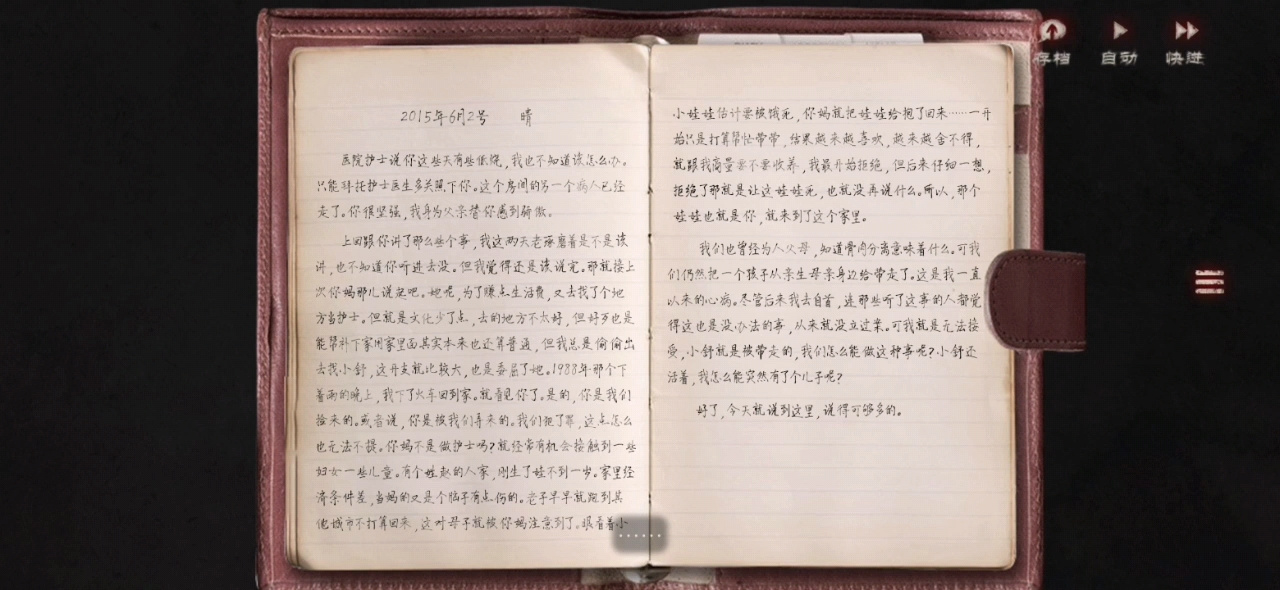 存档 自动 快进
2015年6月2号 晴
医院护士说你这些天有些低烧,我也不知道该怎么办。
只能拜托护士医生多关照下你。这个房间的另一个病人已经
走了。你很坚强,我身为父亲替你感到骄傲。
上回跟你讲了那么些个事,我这两天老琢磨着是不是该
讲,也不知道你听进去没。但我觉得还是该说完。那就接上
次你妈那儿说起吧。她呢,为了赚点生活费,又去找了个地
方当护士。但就是文化少了点,去的地方不太好,但好歹也是
能帮补下家用家里面其实本来也还算普通,但我总是偷偷出
去找小舒,这开支就比较大,也是委屈了她。1988年那个下
着雨的晚上,我下了火车回到家。就看见你了。是的,你是我们
捡来的。或者说,你是被我们寻来的。我们犯了罪,这点怎么
也无法不提。你妈不是做护士吗?就经常有机会接触到一些
妇女一些儿童。有个姓赵的人家,刚生了娃不到一岁。家里经
济条件差,当妈的又是个脑子有点伤的。老子早早就跑到其
他城市不打算回来,这对母子就被你妈注意到了。眼看着小
小娃娃估计要被饿死,你妈就把娃娃给抱了回来……一开
始只是打算帮忙带带,结果越来越喜欢,越来越舍不得,
就跟我商量要不要收养,我最开始拒绝,但后来仔细一想,
拒绝了那就是让这娃娃死,也就没再说什么。所以,那个
娃娃也就是你,就来到了这个家里。
我们也曾经为人父母,知道骨肉分离意味着什么。可我
们仍然把一个孩子从亲生母亲身边给带走了。这是我一直
以来的心病。尽管后来我去自首,连那些听了这事的人都觉
得这也是没办法的事,从来就没立过案。可我就是无法接
受,小舒就是被带走的,我们怎么能做这种事呢?小舒还
活着,我怎么能突然有了个儿子呢?
好了,今天就说到这里,说得可够多的。
……